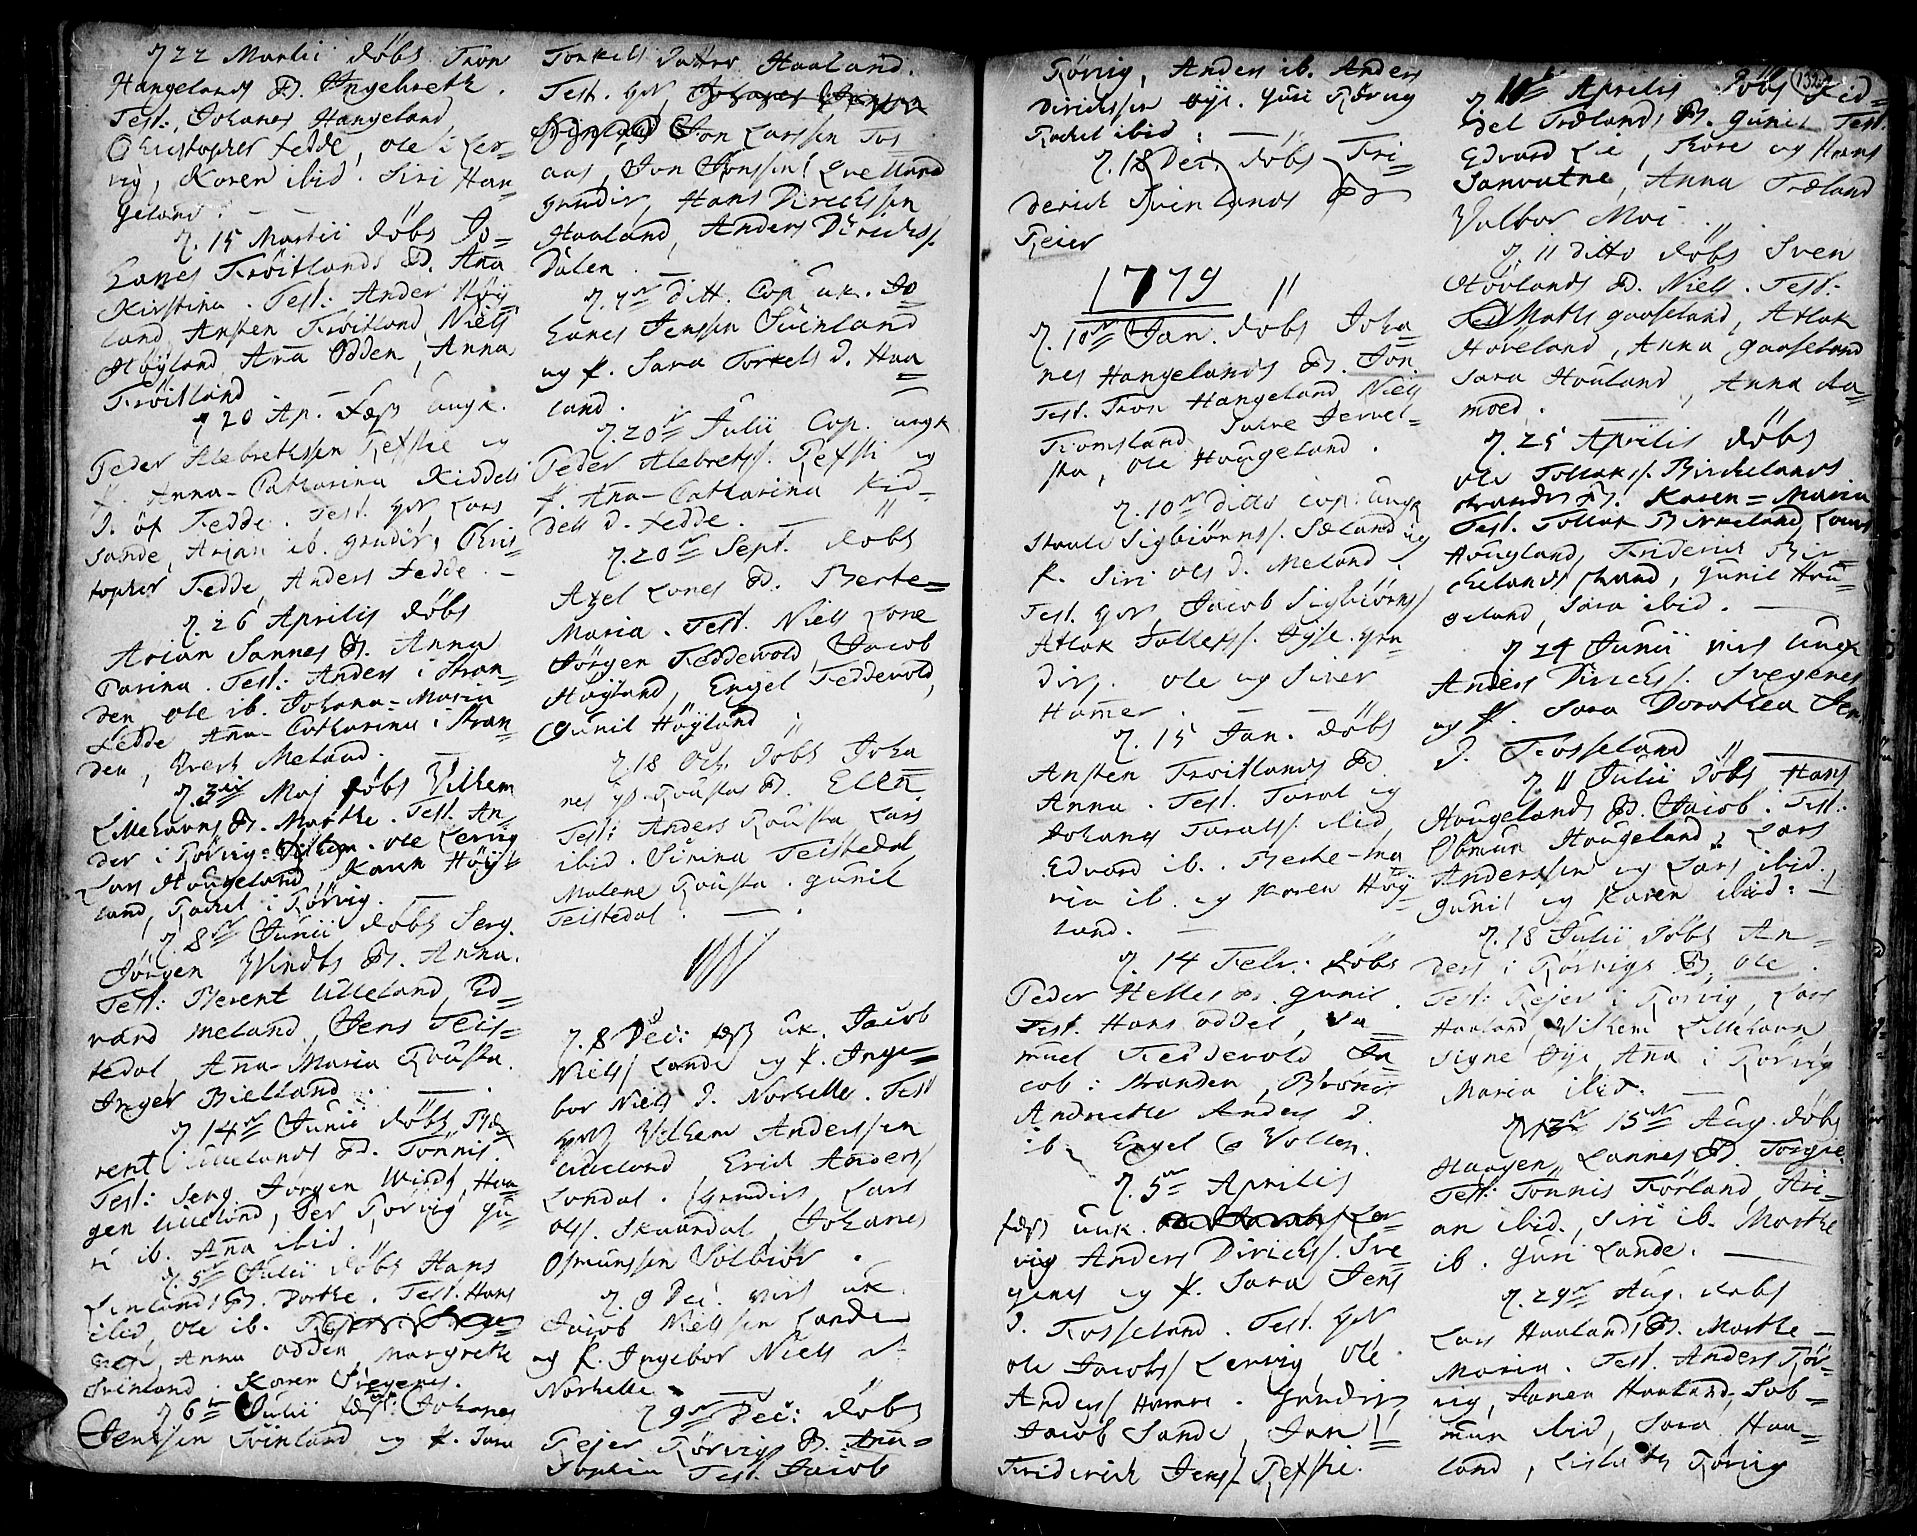 22 Martii döbt Tron
Hangelands B. Engebreth.
Test: Johanes Hangeland
Christopher Fedde, Ole i Ler-
vig, Karen ibid. Siri Han-
geland.
15 Martii döbt Jo-
hanes Tröitlands B. Aña
Kirstina. Test: Ander Höy
land, Ansten Tröitland Niels
Höyland, Aña Odden, Anna
Tröitland
20 Ap. fæst ungk.
Peder Alebrethssen Refstie og
P. Anna-Catharina Kiddels
D. of Fedde. Test. Lars
Sande, Arian ib. Chris-
topher Fedde, Anders Fedde.
26 Aprilis döbt
Arian Sannes B. Anna
Carina. Test: Anders i Stran-
den, Ole ib. Johana-Maria
Fedde Aña-Catharina i Stran-
den, Meland.
3 Maj döbt Vilhem
Lillehavns B. Marthe. Test. An-
der i Rörvig: Ole Lervig
Lars Hougeland, Karen Höy-
land, Rachel i Rörvig.
8 Junii döbt Serg.
Jörgen Windts B. Anna.
Test: Berent Ulleland, Ed-
vard Meland, Jens Teis-
tedal Aña-Maria Rousta.
Inger Bielland.
14 Junii döbt Be-
rent Ullelands B. Tönnis.
Test: Serg. Jörgen Windt, Haa-
gen Ulleland, Per Rörvig Gu-
ri ib. Aña ibid.
5 Julii döbt Hans
B. Dorthe. Test. Hans
ibid, Ole ib.
Anna Odden Margrethe
Svinland. Karen Svegenes.
6 Julii fæst: Johanes
Jenssen Svinland og P. Sara
Torkels Datter Haaland.
Test.
Jon Larssen Tos
aas, Jon Jonssen
Hans Dirichssen
Haaland, Anders Dirichs.
Dalen.
ditt. Cop. uk. Jo-
hanes Jenssen Svinland
og P. Sara Torkels D. Haa
land.
20 Julii Cop. ungk
Peder Alebrets. Refsti og
P. Aña-Catharina Kid-
dels D. Fedde.
20 Sept. döbt
Axel Lones B. Berte-
Maria. Test. Niels Lone
Jörgen Feddevold, Jacob
Höyland, Engel Feddevold,
Gunil Höyland
18 Oct. döbt Joha
nes Rousta B. Ellen
Test: Anders Rousta Lars
ibid. Sirina Teistedal
Malene Rousta. Gunil
Teistedal.
8 Dec: fæst uk. Jacob
Niels Lande og P. Inge-
bor Niels D. Norhelle. Test
Vilhem Anderssen
Ulleland Erich Anders
Londal. Lars
Ols. Skaandal, Johanes
Osmunssen Solbiör.
9 Dec: viet uk.
Jacob Nielssen Lande
og P. Ingebor Niels D.
Norhelle.
9 Dec: döbt
Rejer Rörvigs B. Aña-
Test. Jacob
Rörvig, Anders ib. Anders
Dirichssen Öye. Guri Rörvig
Rachel ibid.
18 Dec: döbt Fri-
derich Svinlands B
Rejer
1779
10 Jan. döbt Joha
nes Hangelands B. Jon
Test. Tron Hangeland Niels
Tromsland
Ole Hougeland.
10 ditto Cop: ungk
Staale Sigbiörns. Sæland og
P. Siri Ols D. Meland.
Test. Jacob Sigbiörns
Atlak Salless. Öyse.
Ole og Siver
Hamer.
15 Jan. döbt
Ansten Tröitlands B.
Anna. Test. Taral og
Johanes Tarals. ibid,
Edvard ib. Berte-Ma
ria ib. og Karen Höy-
land.
14 Febr: döbt
Peder Helles B. Gunil.
Test. Hans Oddel, Sa
muel Feddevold Ja
cob i Stranden,
Andrethe Anders D.
ib Engel Vollen.
5 Aprilis
fæst unk. Ler-
vig Anders Dirichs. Sve-
genes og P. Sara Jens
D. Tosseland. Test.
Ole Jacobs Lervig, Ole
Anders Hamre.
Jacob Sande, Jan
Friderich Jens. Refstie.
Aprilis döbt Kid-
del Træland B. Gunil Test.
Edvard Lie, Tore og Hans
Sanvatne, Anna Træland
Valbor Moi
11 ditto döbt Sven
Hövlands B. Niels. Test:
Mats Gaaseland, Atlak
Hoveland, Anna Gaaseland
Sara Houland, Anna Aa-
moed.
25 Aprilis döbt
Ole Tollaks. Birchelands
strands B. Karen=Maria
Test. Tollak Birkeland, Lars
Hougland, Friderich Bir-
chelands strand, Gunil Hou-
geland, Sara ibid.
24 Junii viet Ungk
Anders Dirichs. Svegenes
og P. Sara Dorothea Jens
D. Tosseland
11 Julii döbt Hans
Hougelands B. Jacob. Test:
Obmun Hougeland, Lars
Anderssen og Lars ibid.
Gunil og Karen ibid.
18 Julii döbt An-
ders i Rörvigs B. Ole.
Test: Rejer i Rörvig, Lars
Haaland, Vilhem Lillehavn
Signe Öye, Aña i Rörvig
Maria ibid.
15 Aug. döbt
Haagen Lannes B. Torgie.
Test: Tönnis Förland, Ari-
an ibid., Siri ib. Marthe
ib. Guri Lande.
29 Aug. döbt
Lars Haalands B. Marthe-
Maria. Test. Anders Rör-
vig, Janen Haaland, Sob-
mun ibid, Sara Haa-
land, Rörvig